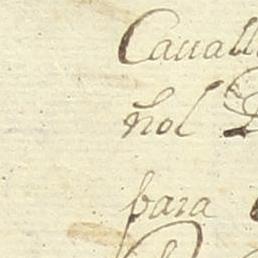 Cauall
ñol
para